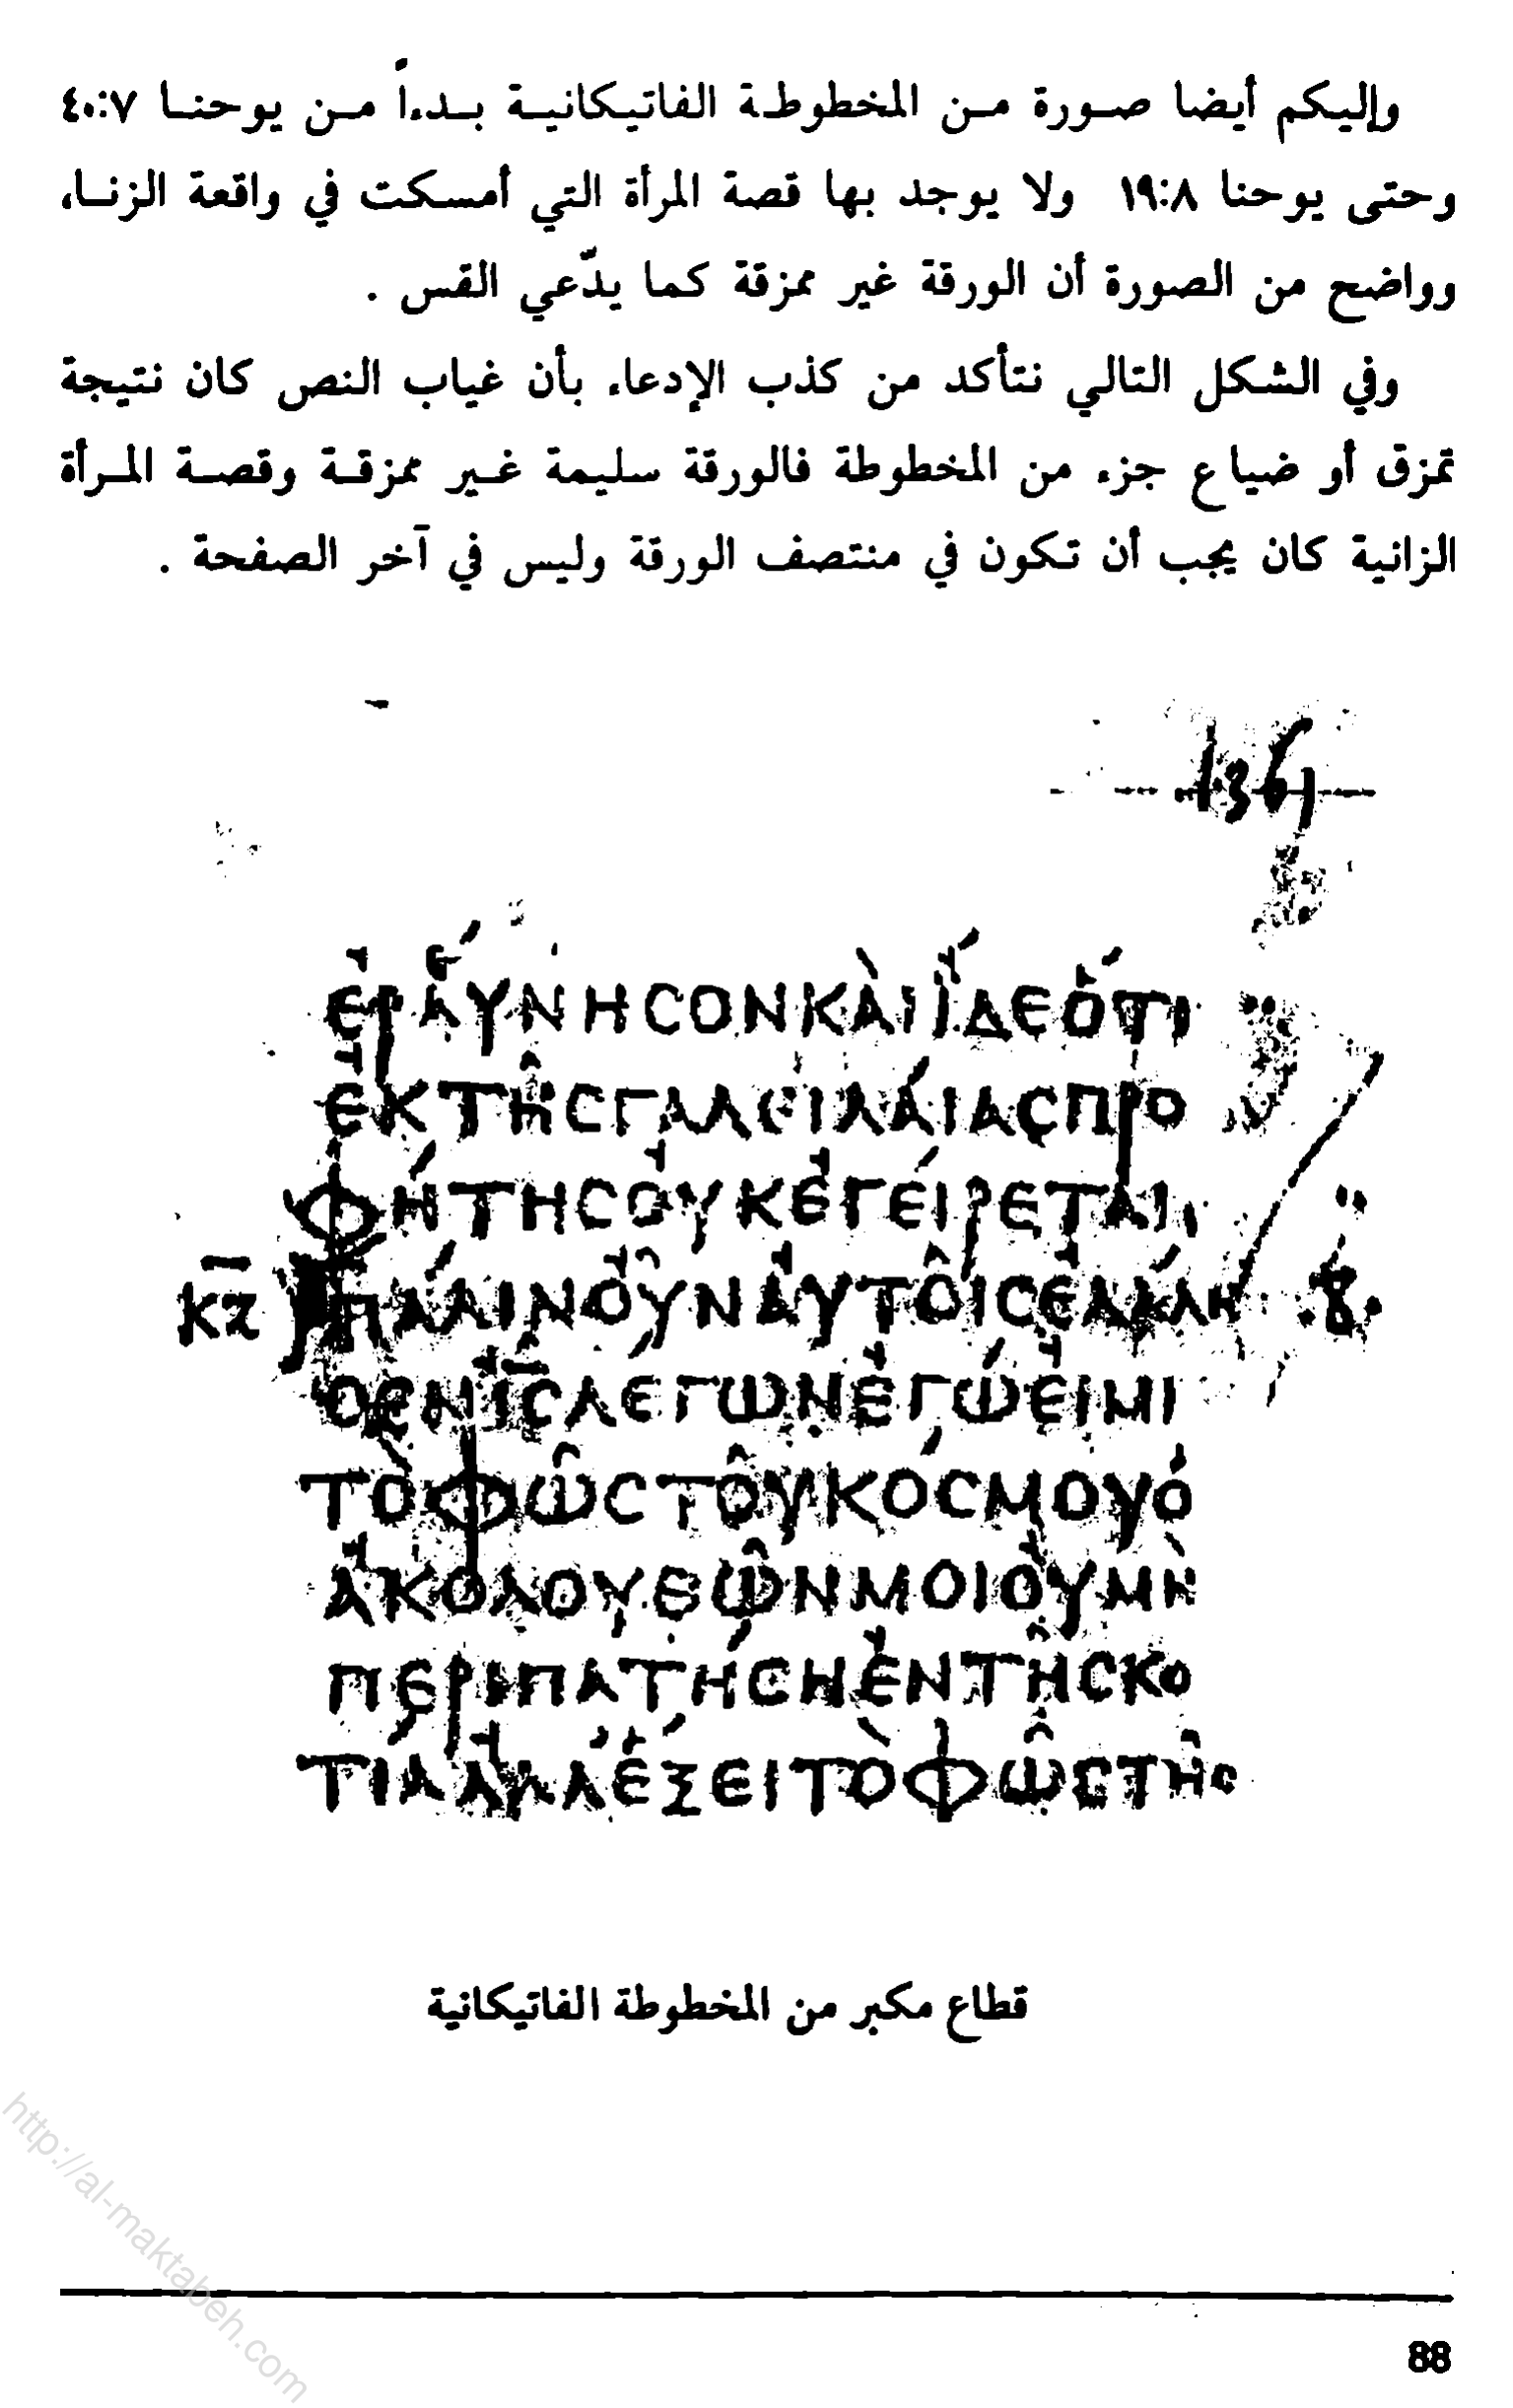 وإليكم أيضا صورة من المخطوطة الفاتيكانية بدءاً من يوحنا ٤٠:٧
وحتى يوحنا ١٩:٨ ولا يوجد بها قصة المرأة التي أمسكت في واقعة الزنا،
وواضح من الصورة أن الورقة غير ممزقة كما يدّعي القس .
وفي الشكل التالي نتأكد من كذب الإدعاء بأن غياب النص كان نتيجة
تمزق أو ضياع جزء من المخطوطة فالورقة سليمة غير ممزقة وقصة المرأة
الزانية كان يجب أن تكون في منتصف الورقة وليس في آخر الصفحة .
1361
ἐράυνηϲονκὰιἴδεὅτι
ἐκτῆϲγαλειλάιαϲπρο
φήτηϲοὐκἐγείρεται
κζ πάλινοὖναὐτοῖϲἐλάλη
ϲενἰ̅ϲ̅λέγωνἐγώεἰμι
τὸφῶϲτοῦκόϲμουὁ
ἀκολουθῶνμοιοὐμὴ
περιπατήϲηἐντῆϲκο
τίαἀλλἕξειτὸφῶϲτῆϲ
قطاع مكبر من المخطوطة الفاتيكانية
88
http://al-maktabeh.com